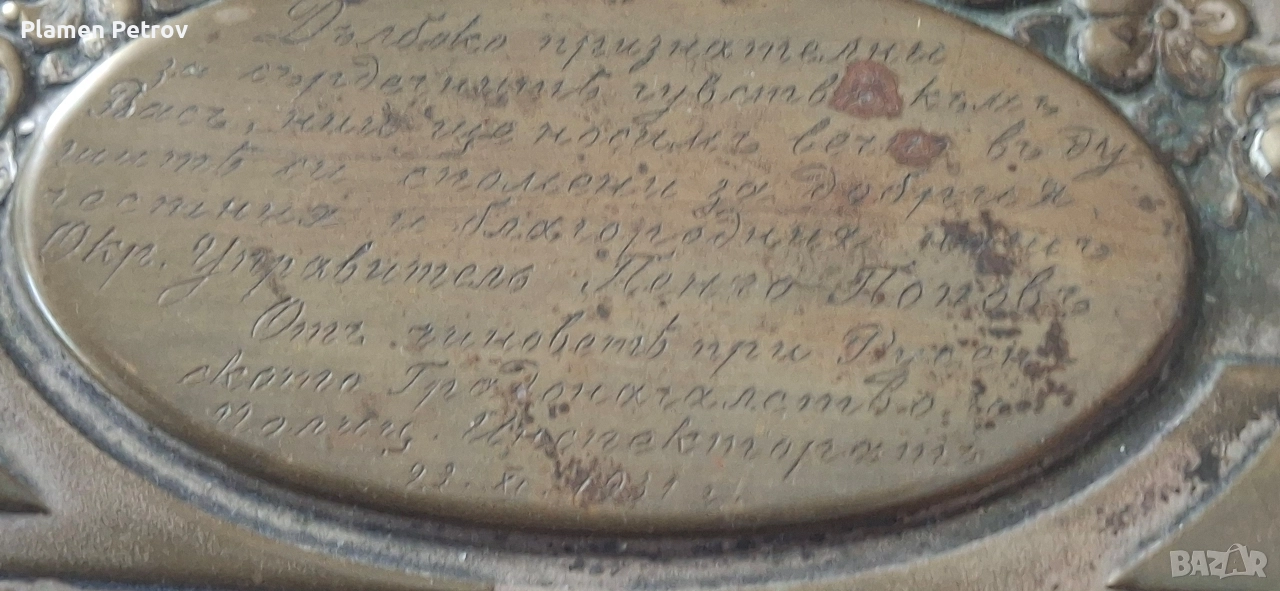 Plamen Petrov
Дълбоко признателни
за сърдечнитѣ чувства къмъ
Васъ, ний ще носимъ вечно въ ду
шитѣ си спомени за добрия
честния и благородния нашъ
Окр. Управитель Пенчо Поповъ
Отъ чиноветѣ при Русен
ското Градоначалство и
Полиц. Инспекторатъ
23. XI. 1931 г.
BAZAR